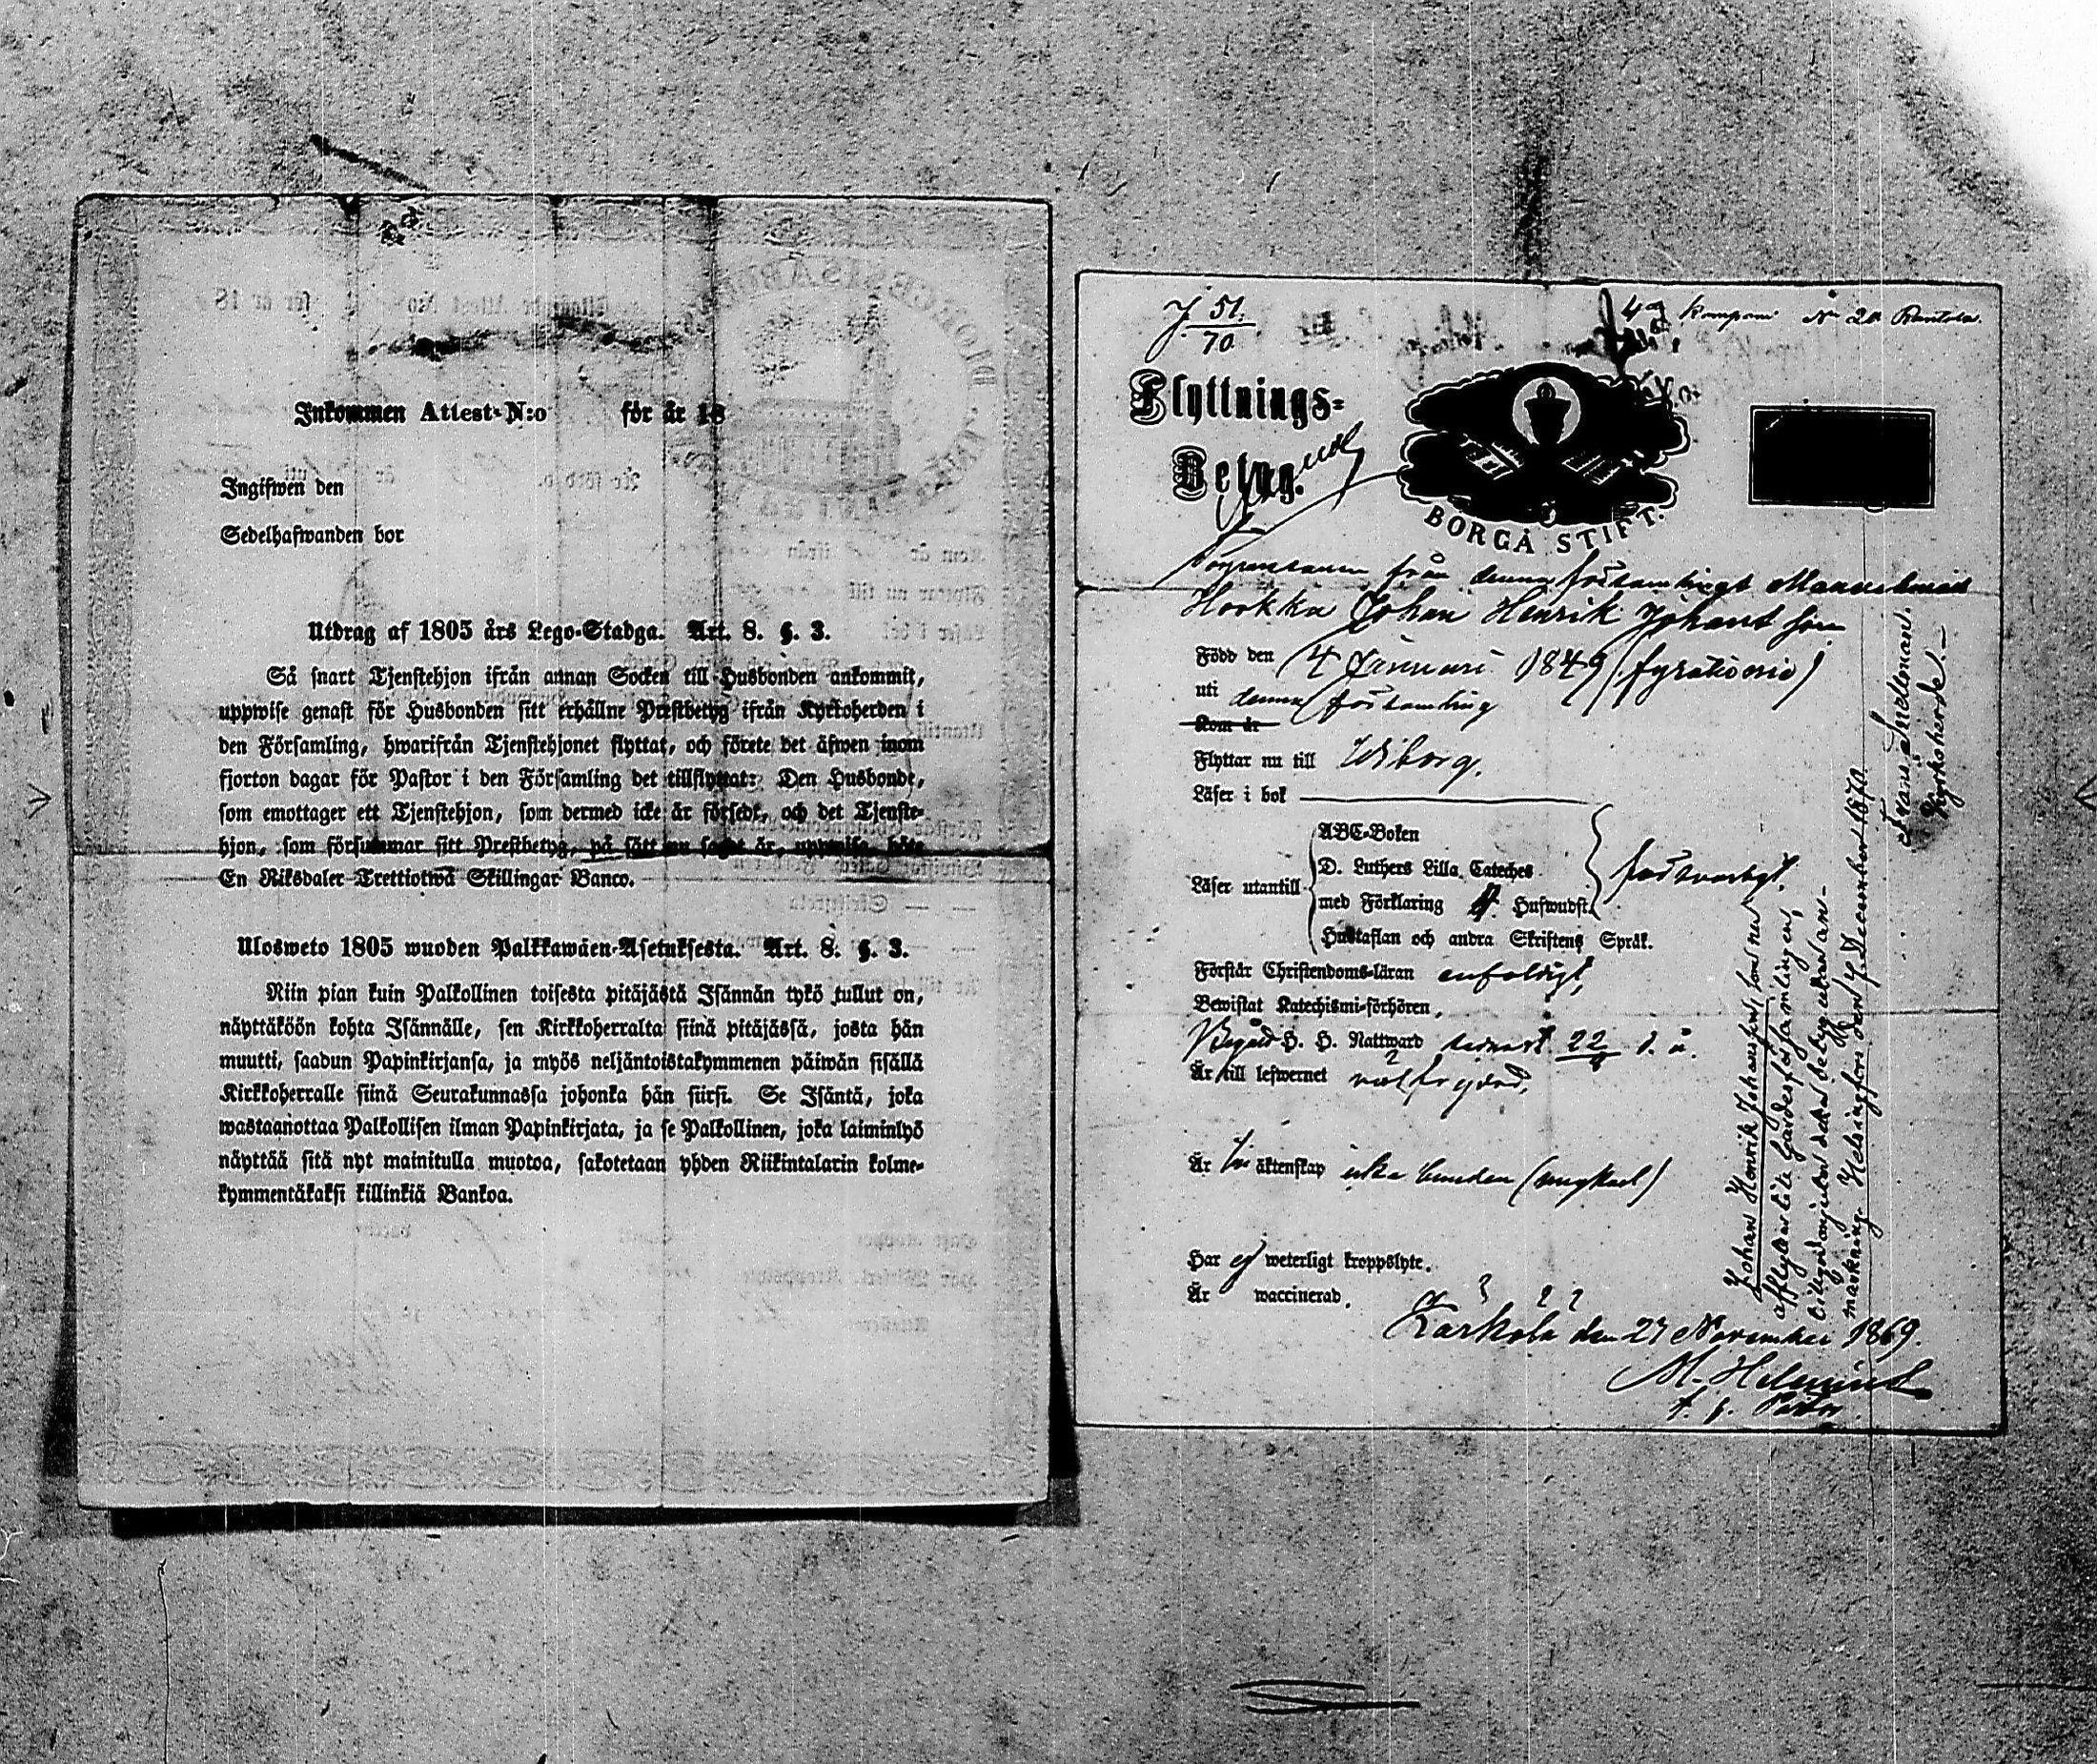 Inkommen Attest-N:o för år 18
Ingifwen den
Sedelhafwanden bor
Utdrag af 1805 års Lego-Stadga. Art. 8. §. 3.
Så snart Tjenstehjon ifrån annan Socken till Husbonden ankommit,
uppwise genast för Husbonden sitt erhållne Prestbetyg ifrån Kyrkoherden i
den Församling, hwarifrån Tjenstehjonet flyttat, och förete det äfwen inom
fjorton dagar för Pastor i den Församling det tillflyttat: Den Husbonde,
som emottager ett Tjenstehjon, som dermed icke är försedt, och det Tjenste-
hjon, som försummar sitt Prestbetyg, på sätt nu sagdt är, uppwisa, böte
En Riksdaler Trettiotwå Skillingar Banco.
Ulosweto 1805 wuoden Palkkawäen-Asetuksesta. Art. 8. §. 3.
Niin pian kuin Palkollinen toisesta pitäjästä Isännän tykö tullut on,
näyttäköön kohta Isännälle, sen Kirkkoherralta siinä pitäjässä, josta hän
muutti, saadun Papinkirjansa, ja myös neljäntoistakymmenen päiwän sisällä
Kirkkoherralle siinä Seurakunnassa johonka hän siirsi. Se Isäntä, joka
wastaanottaa Palkollisen ilman Papinkirjata, ja se Palkollinen, joka laiminlyö
näyttää sitä nyt mainitulla muotoa, sakotetaan yhden Riikintalarin kolme-
kymmentäkaksi killinkiä Bankoa.
J 51.
70
4de Kompani No 20 Rantola.
Flyttnings-
Betyg.
BORGÅ STIFT.
från denna församlings
Horkka Johan Henrik Johans son
Född den 4 Januari 1849 (fyrationio)
uti denna församling
Kom år
Flyttar nu till Wiborg.
Läser i bok
ABC-Boken
D. Luthers Lilla Cateches
Läser utantill
med Förklaring Hufwudst.
försvarligt.
Hustaflan och andra Skriftens Språk.
Förstår Christendoms-läran enfaldigt,
Bewistat Katechismi-förhören,
Begått H. H. Nattward senast 22 d. å.
Är till lefwernet välfrejdad,
Är till äktenskap icke bunden (ungkarl)
Har ej weterligt kroppslyte.
Är waccinerad.
Kärkölä den 27 November 1869.
M. Helenius
t. f. Pastor
Johan Henrik Johansson, som nu
afflyttar till Gardesförsamlingen,
märkning. Helsingfors den 4 December 1870.
Frans Friedman.
Kyrkoherde.